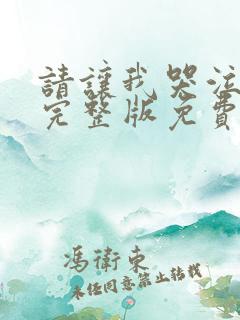 請讓我哭泣
完整版免費
馮衛東
未经同意禁止转载